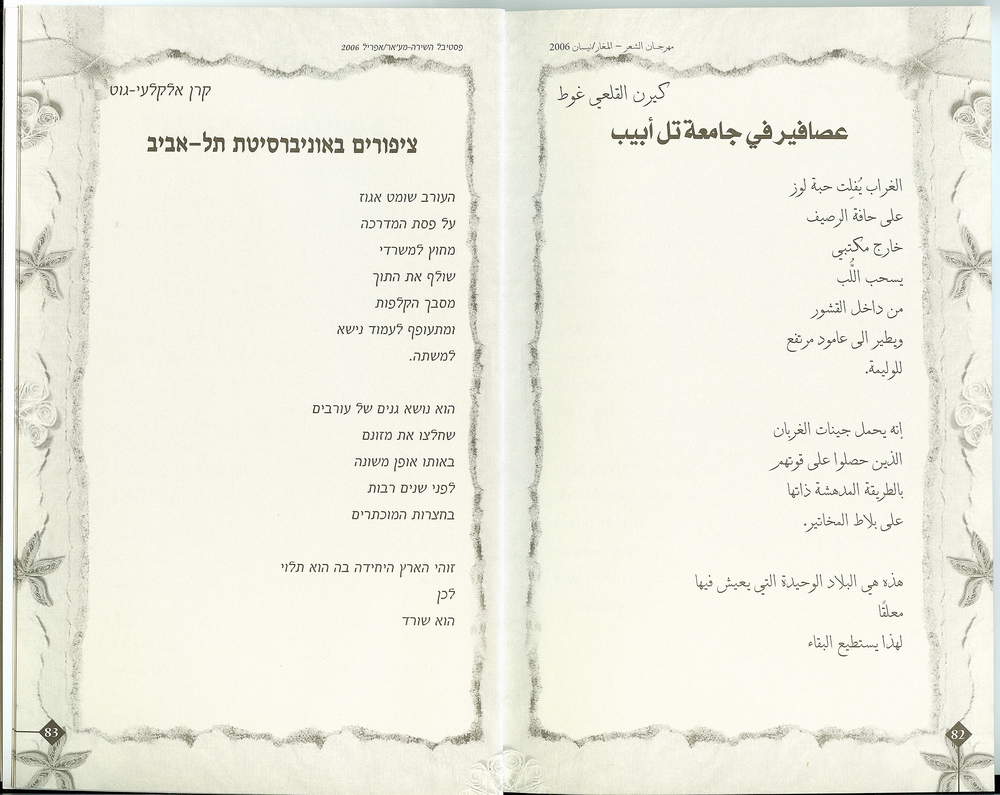 مهرجان الشعر – المغار/نيسان 2006
كيرن القلعي غوط
عصافير في جامعة تل أبيب
الغراب يُفلِت حبة لوز
على حافة الرصيف
خارج مكتبي
يسحب اللُّب
من داخل القشور
ويطير الى عامود مرتفع
للوليمة.
إنه يحمل جينات الغربان
الذين حصلوا على قوتهم
بالطريقة المدهشة ذاتها
على بلاط المخاتير.
هذه هي البلاد الوحيدة التي يعيش فيها
معلقًا
لهذا يستطيع البقاء
82
פסטיבל השירה-מע'אר/אפריל 2006
קרן אלקלעי-גוט
ציפורים באוניברסיטת תל–אביב
העורב שומט אגוז
על פסת המדרכה
מחוץ למשרדי
שולף את התוך
מסבך הקלפות
ומתעופף לעמוד נישא
למשתה.
הוא נושא גנים של עורבים
שחלצו את מזונם
באותו אופן משונה
לפני שנים רבות
בחצרות המוכתרים
זוהי הארץ היחידה בה הוא תלוי
לכן
הוא שורד
83